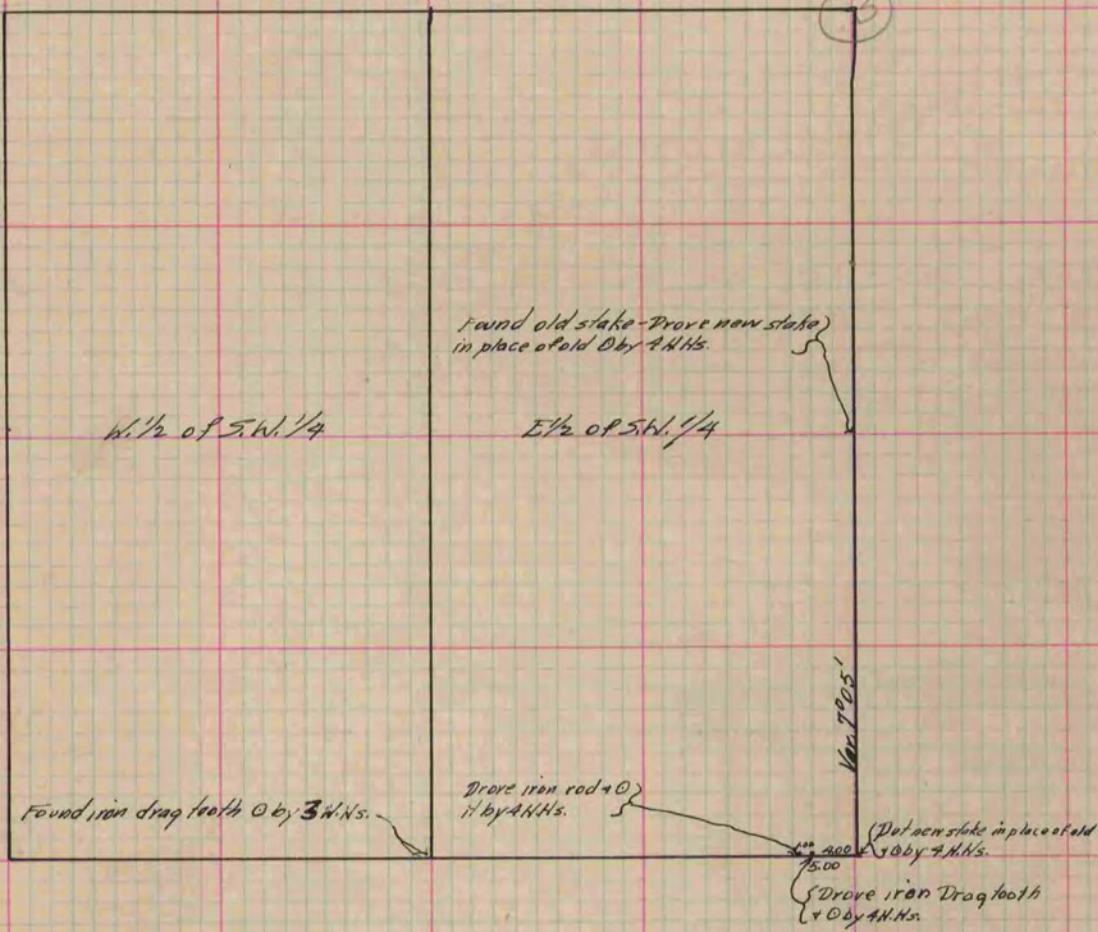 Found old stake-Drove new stake
in place of old ʘ by 4 H.Hs.
W. 1/2 of S.W. 1/4
E 1/2 of S.W. 1/4
Var. 7°05'
Found iron drag tooth ʘ by 3 H.Hs.
Drove iron rod + ʘ
it by 4 H.Hs.
1.00 4.00
5.00
new stake in place of old
+ ʘ by 4 H.Hs.
Drove iron Drag tooth
+ ʘ by 4 H.Hs.